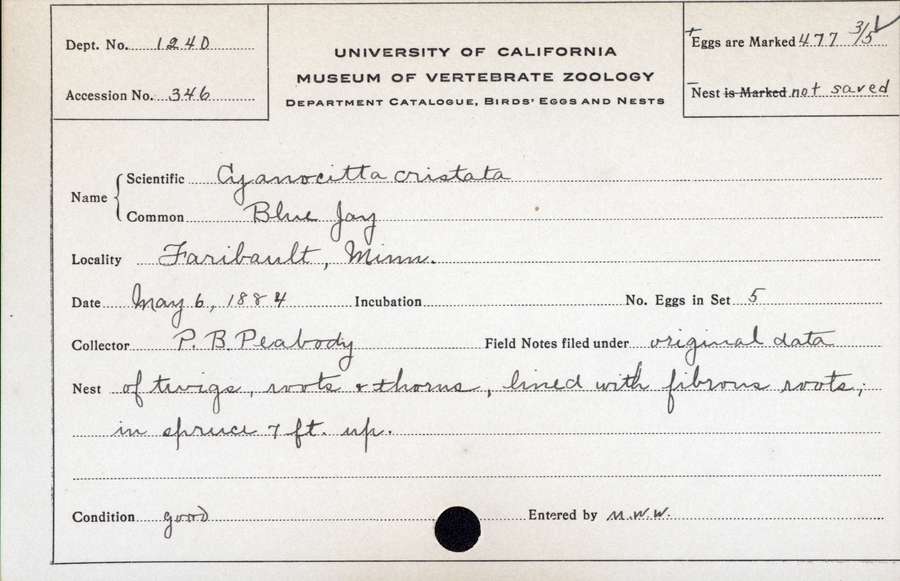 Dept. No. 1240
Accession No. 346
UNIVERSITY OF CALIFORNIA
MUSEUM OF VERTEBRATE ZOOLOGY
DEPARTMENT CATALOGUE, BIRDS' EGGS AND NESTS
Eggs are Marked 477 3/5
Nest is Marked not saved
Name
Scientific Cyanocitta cristata
Common Blue Jay
Locality Faribault, Minn.
Date May 6, 1884 Incubation No. Eggs in Set 5
Collector P. B. Peabody Field Notes filed under original data
Nest of twigs, roots + thorns, lined with fibrous roots;
in spruce 7 ft. up.
Condition good Entered by M.W.W.